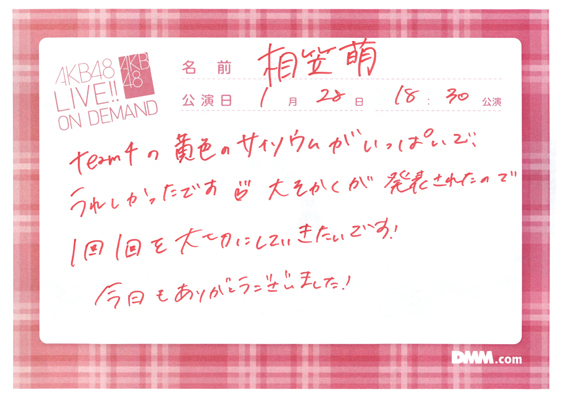 AKB48
LIVE!!
ON DEMAND
AKB
48
名前 相笠萌
公演日 1月28日 18:30公演
team4の黄色のサイリウムがいっぱいで、
うれしかったです 大そかくが発表されたので
1回1回を大切にしていきたいです!
今日もありがとうございました!
DMM.com